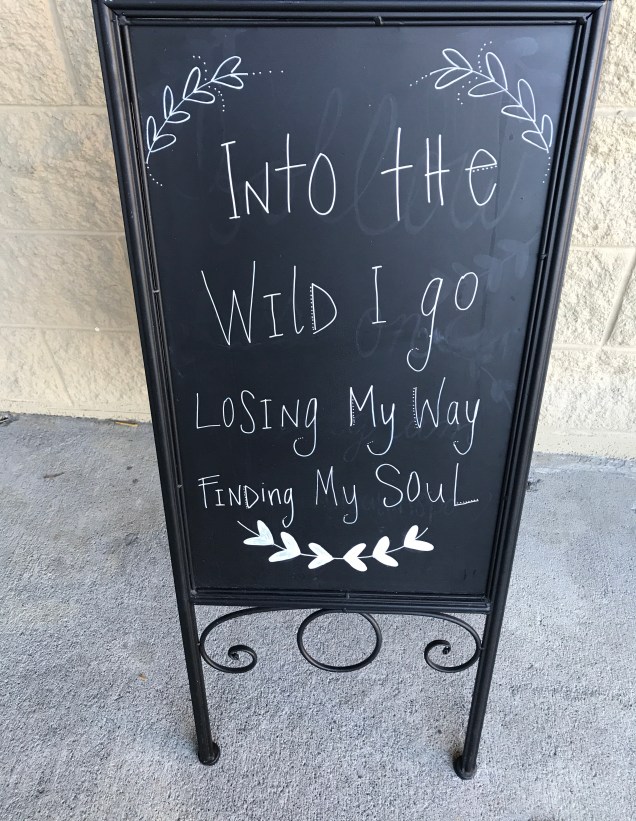 Into the
Wild I go
Losing My Way
Finding My Soul